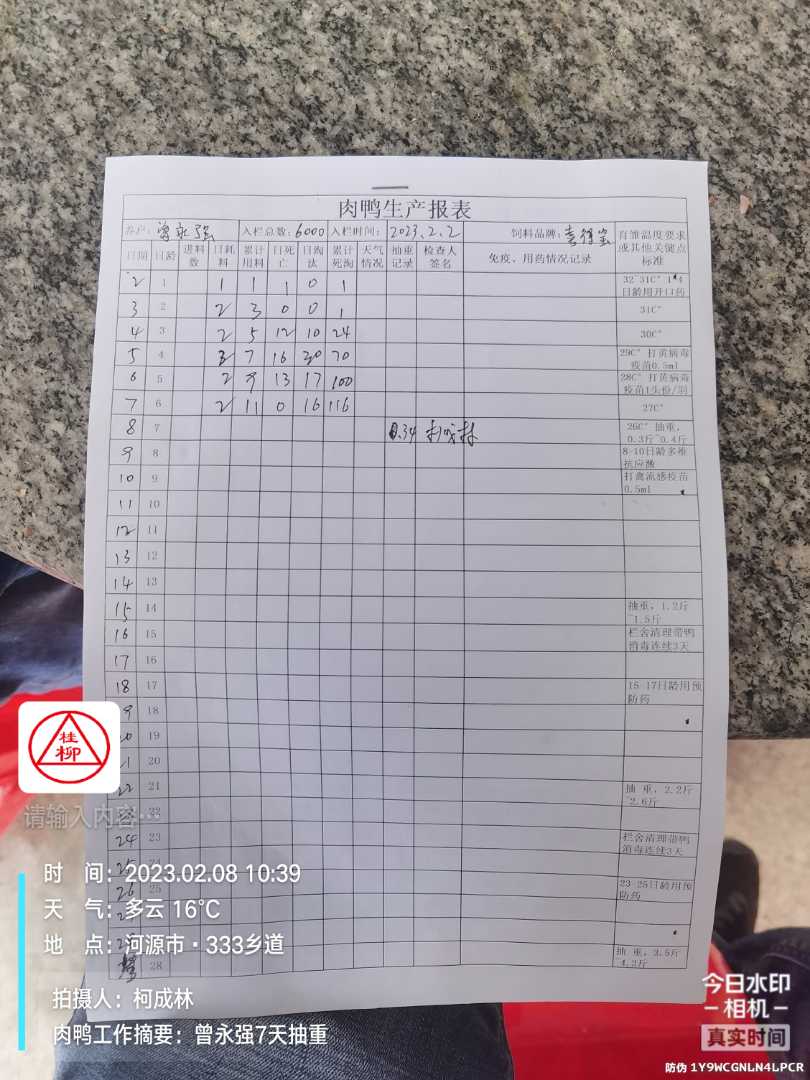 肉鸭生产报表
养户: 曾永强 入栏总数: 6000 入栏时间: 2023.2.2 饲料品牌: 育雏温度要求或其他关键点标准
日期 日龄 进料数 日耗料 累计用料 日死亡 日淘汰 累计死淘 天气情况 抽重记录 检查人签名 免疫、用药情况记录
2 1 1 1 1 0 1 32~31C° 1~4日龄用开口药
3 2 2 3 0 0 1 31C°
4 3 2 5 12 10 24 30C°
5 4 7 16 30 70 29C° 打黄病毒疫苗0.5ml
6 5 2 9 13 17 100 28C° 打黄病毒疫苗1头份/羽
7 6 2 11 0 16 116 27C°
8 7 0.34 26C° 抽重, 0.3斤~0.4斤
9 8 8-10日龄多维抗应激
10 9 打禽流感疫苗0.5ml
11 10
12 11
13 12
14 13
15 14 抽重, 1.2斤~1.5斤
16 15 栏舍清理带鸭消毒连续3天
17 16
18 17 15-17日龄用预防药
9 18
19
20
21 抽 重, 2.2斤~2.6斤
24 23 栏舍清理带鸭消毒连续3天
25
26 25 23-25日龄用预防药
28 抽 重, 3.5斤~4.2斤
桂柳
请输入内容…
时 间: 2023.02.08 10:39
天 气: 多云 16℃
地 点: 河源市·333乡道
拍摄人: 柯成林
肉鸭工作摘要: 曾永强7天抽重
今日水印
相机
真实时间
防伪 1Y9WCGNLN4LPCR